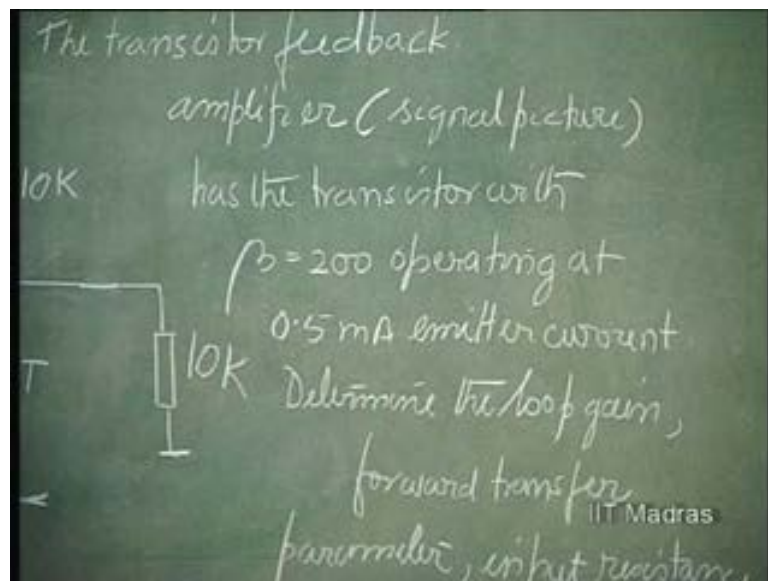 The transistor feedback
amplifier (signal picture)
10K
has the transistor with
β = 200 operating at
0.5 mA emitter current
T
10K
Determine the loop gain,
forward transfer
IIT Madras
parameter, input resistance,